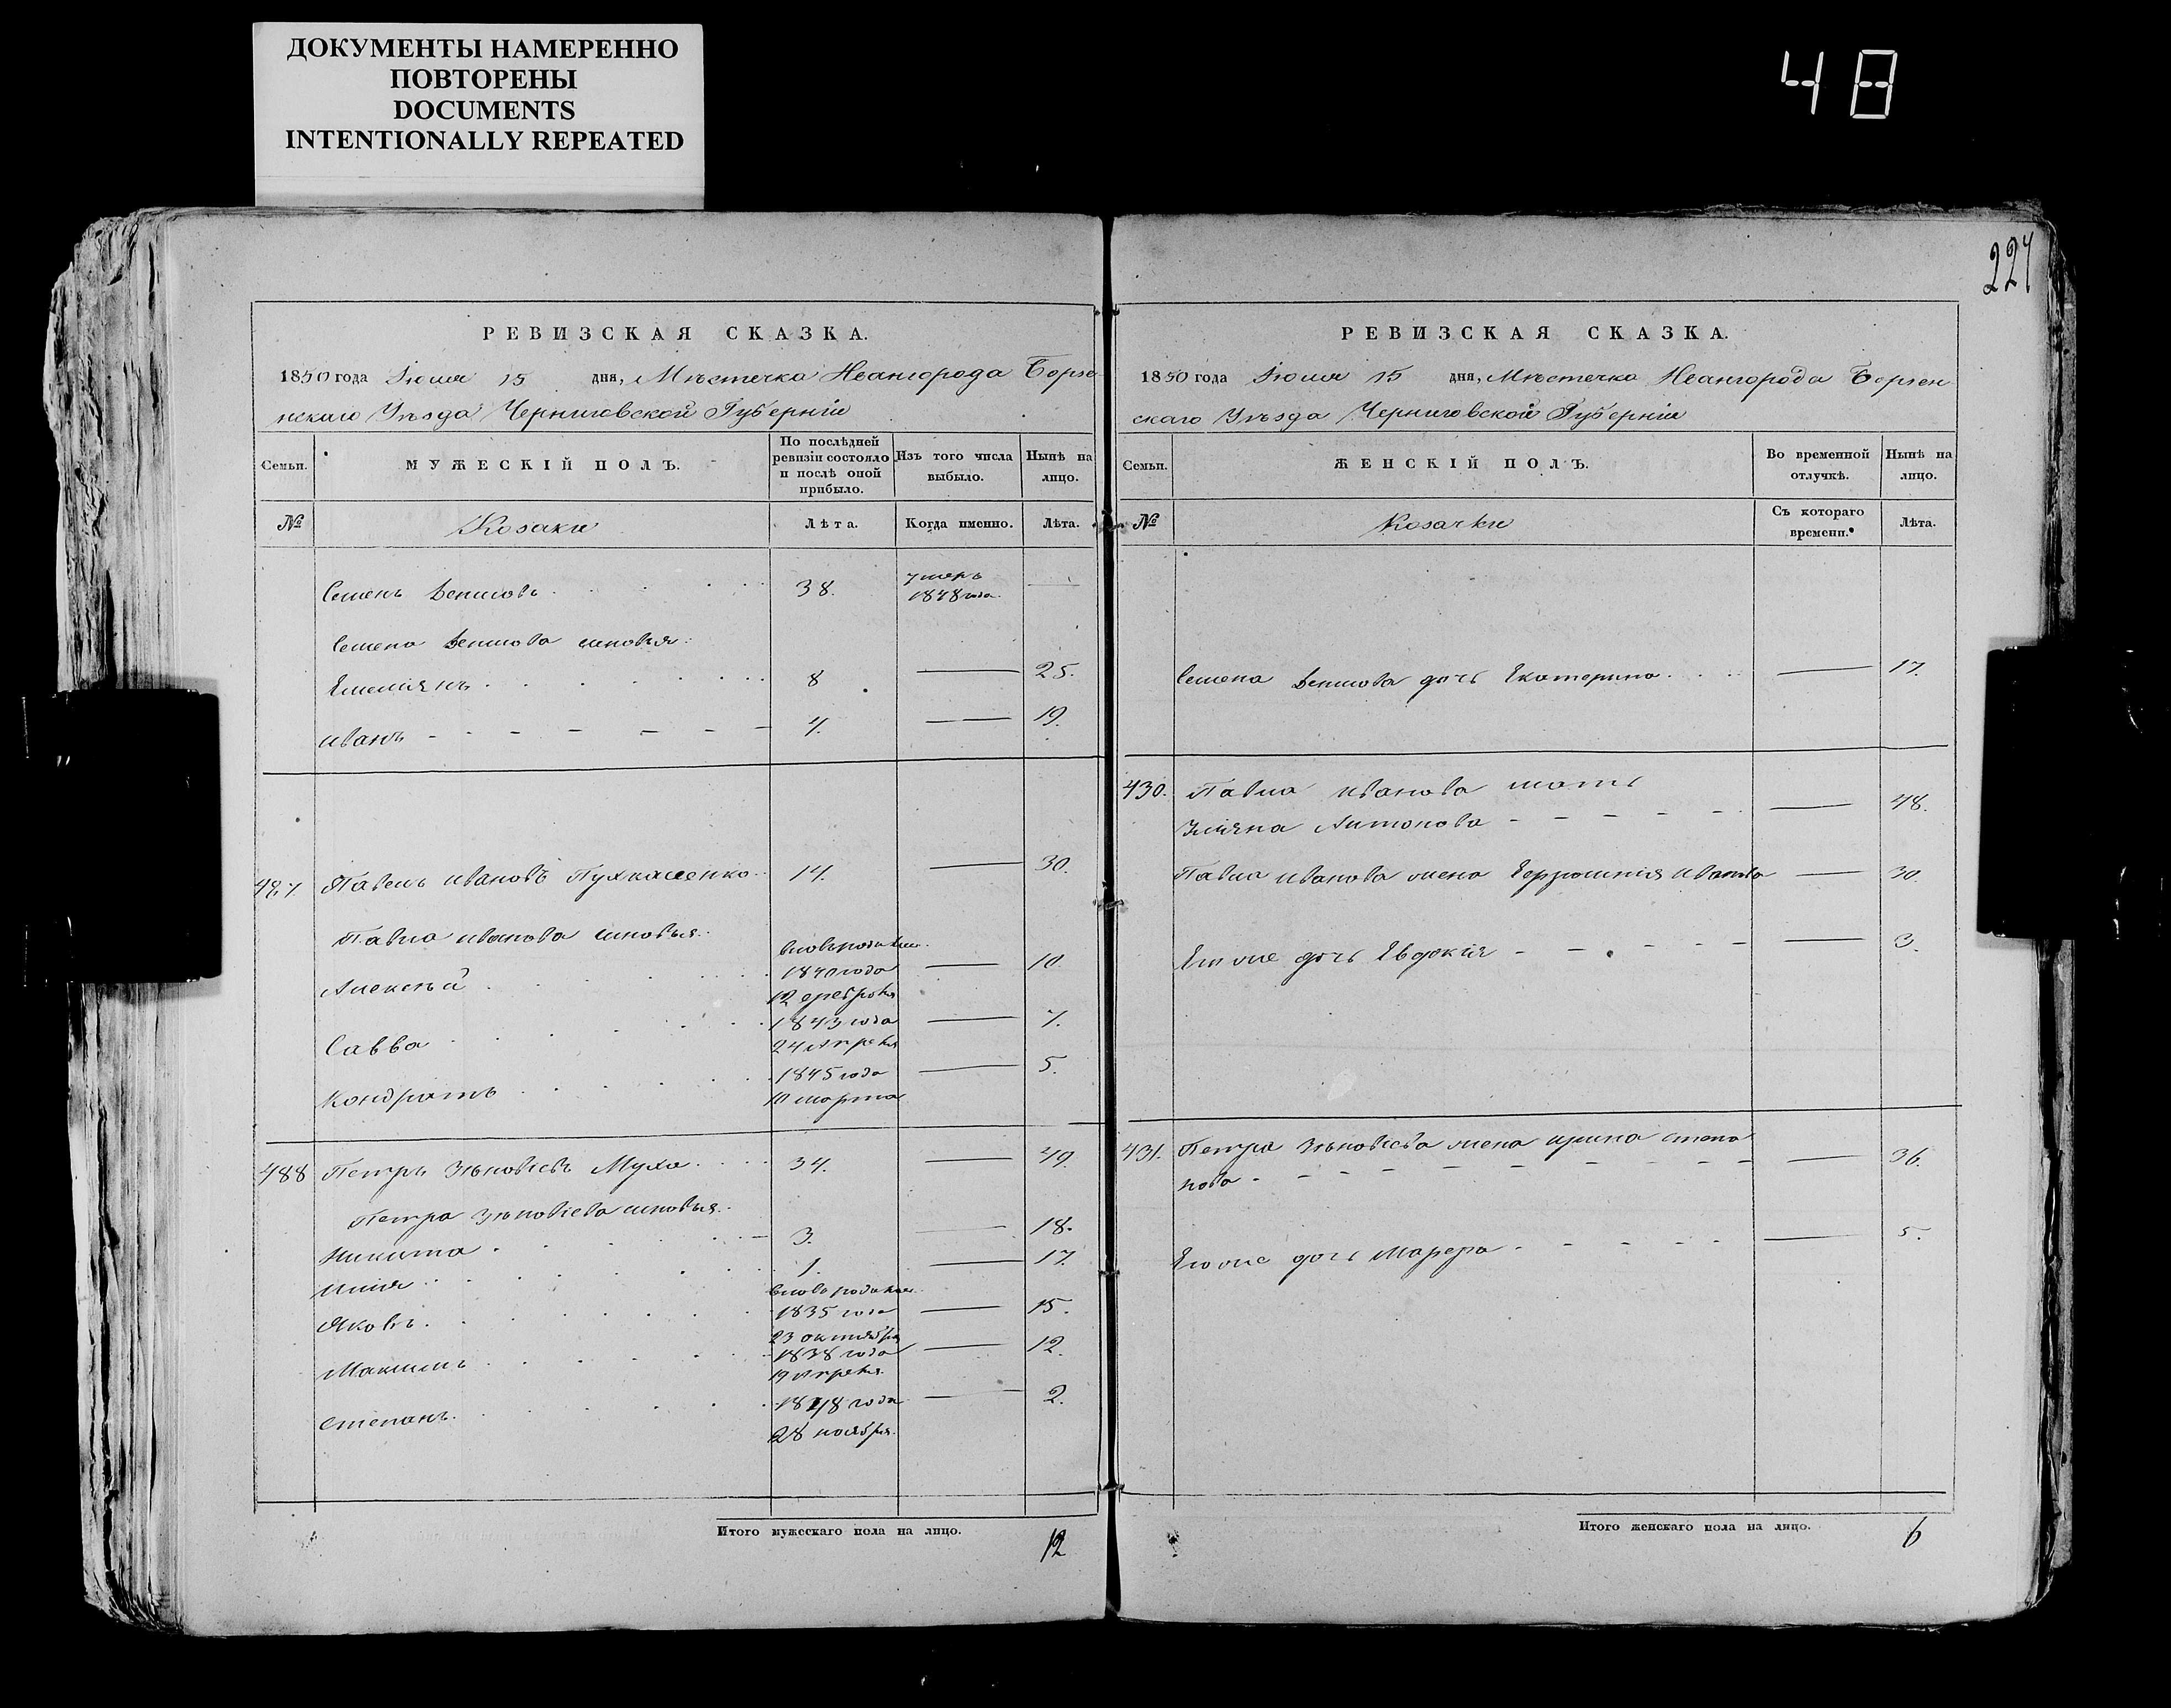 ДОКУМЕНТЫ НАМЕРЕННО
ПОВТОРЕНЫ
DOCUMENTS
INTENTIONALLY REPEATED
48
РЕВИЗСКАЯ СКАЗКА.
1850 года Іюля 15 дня, Мѣстечка Ивангорода Борзе
нскаго Уѣзда Черниговской Губерніи
Семьи. МУЖЕСКІЙ ПОЛЪ. По послѣдней ревизіи состояло и послѣ оной прибыло. Изъ того числа выбыло. Нынѣ на лицо.
№ Козаки Лѣта. Когда именно. Лѣта.
Семенъ 38. умеръ 1848 года. —
Семена сыновья:
Емельянъ 8 — 25.
Иванъ 4. — 19.
487 Павелъ Ивановъ 14. — 30.
Павла Иванова сыновья:
Алексѣй 1840 года 12 февраля — 10.
Савва 1843 года 24 Апреля — 7.
Кондратъ 1845 года 10 марта — 5.
488 Петръ Зѣновіевъ Муха 34. — 49.
Петра Зѣновіева сыновья:
Никита 3. — 18.
Илья 1. — 17.
Яковъ 1835 года 23 октября — 15.
Максимъ 1838 года 19 Апреля — 12.
Степанъ 1848 года 28 ноября — 2.
Итого мужескаго пола на лицо. 12
224
РЕВИЗСКАЯ СКАЗКА.
1850 года Іюля 15 дня, Мѣстечка Ивангорода Борзен
скаго Уѣзда Черниговской Губерніи
Семьи. ЖЕНСКІЙ ПОЛЪ. Во временной отлучкѣ. Нынѣ на лицо.
№ Козачки Съ котораго времени. Лѣта.
Семена дочь Екатерина — 17.
430. Павла Иванова мать
Ульяна Антонова — 48.
Павла Иванова жена Иванова — 30.
дочь Евдокія — 3.
431. Петра Зѣновіева жена Ирина Степа
нова — 36.
дочь Марфа — 5.
Итого женскаго пола на лицо. 6